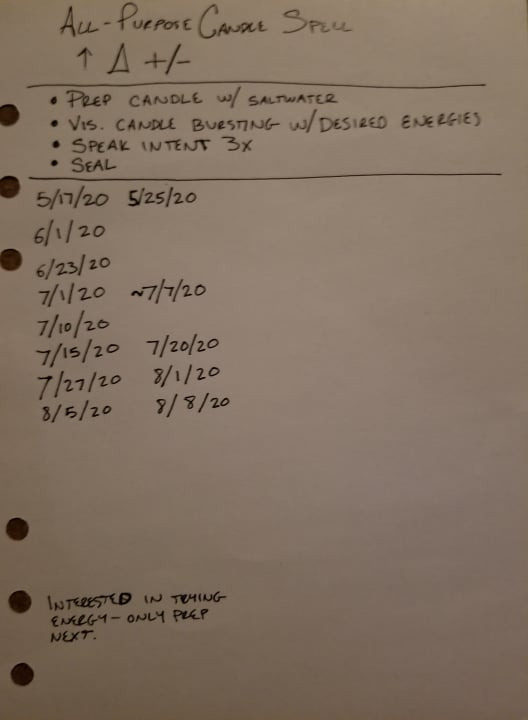 ALL-PURPOSE CANDLE SPELL
↑ Δ +/-
• PREP CANDLE W/ SALTWATER
• VIS. CANDLE BURSTING W/ DESIRED ENERGIES
• SPEAK INTENT 3X
• SEAL
5/17/20 5/25/20
6/1/20
6/23/20
7/1/20 ~7/7/20
7/10/20
7/15/20 7/20/20
7/27/20 8/1/20
8/5/20 8/8/20
INTERESTED IN TRYING
ENERGY- ONLY PREP
NEXT.